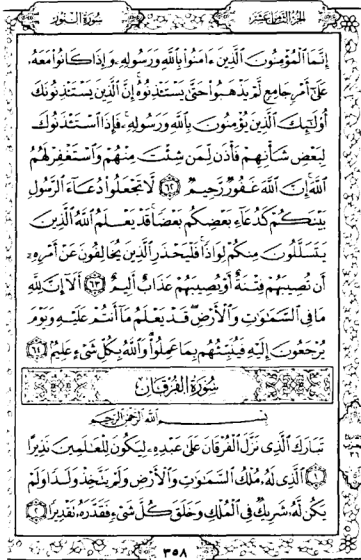 الجزء الثامن عشر
سورة النور
إِنَّمَا ٱلْمُؤْمِنُونَ ٱلَّذِينَ ءَامَنُوا۟ بِٱللَّهِ وَرَسُولِهِۦ وَإِذَا كَانُوا۟ مَعَهُۥ
عَلَىٰٓ أَمْرٍ جَامِعٍ لَّمْ يَذْهَبُوا۟ حَتَّىٰ يَسْتَـْٔذِنُوهُ إِنَّ ٱلَّذِينَ يَسْتَـْٔذِنُونَكَ
أُو۟لَٰٓئِكَ ٱلَّذِينَ يُؤْمِنُونَ بِٱللَّهِ وَرَسُولِهِۦ فَإِذَا ٱسْتَـْٔذَنُوكَ
لِبَعْضِ شَأْنِهِمْ فَأْذَن لِّمَن شِئْتَ مِنْهُمْ وَٱسْتَغْفِرْ لَهُمُ
ٱللَّهَ إِنَّ ٱللَّهَ غَفُورٌ رَّحِيمٌ ٦٢ لَّا تَجْعَلُوا۟ دُعَآءَ ٱلرَّسُولِ
بَيْنَكُمْ كَدُعَآءِ بَعْضِكُم بَعْضًا قَدْ يَعْلَمُ ٱللَّهُ ٱلَّذِينَ
يَتَسَلَّلُونَ مِنكُمْ لِوَاذًا فَلْيَحْذَرِ ٱلَّذِينَ يُخَالِفُونَ عَنْ أَمْرِهِۦٓ
أَن تُصِيبَهُمْ فِتْنَةٌ أَوْ يُصِيبَهُمْ عَذَابٌ أَلِيمٌ ٦٣ أَلَآ إِنَّ لِلَّهِ
مَا فِى ٱلسَّمَٰوَٰتِ وَٱلْأَرْضِ قَدْ يَعْلَمُ مَآ أَنتُمْ عَلَيْهِ وَيَوْمَ
يُرْجَعُونَ إِلَيْهِ فَيُنَبِّئُهُم بِمَا عَمِلُوا۟ وَٱللَّهُ بِكُلِّ شَىْءٍ عَلِيمٌ ٦٤
سورة الفرقان
بسم الله الرحمن الرحيم
تَبَارَكَ ٱلَّذِى نَزَّلَ ٱلْفُرْقَانَ عَلَىٰ عَبْدِهِۦ لِيَكُونَ لِلْعَٰلَمِينَ نَذِيرًا
١ ٱلَّذِى لَهُۥ مُلْكُ ٱلسَّمَٰوَٰتِ وَٱلْأَرْضِ وَلَمْ يَتَّخِذْ وَلَدًا وَلَمْ
يَكُن لَّهُۥ شَرِيكٌ فِى ٱلْمُلْكِ وَخَلَقَ كُلَّ شَىْءٍ فَقَدَّرَهُۥ تَقْدِيرًا ٢
٣٥٨